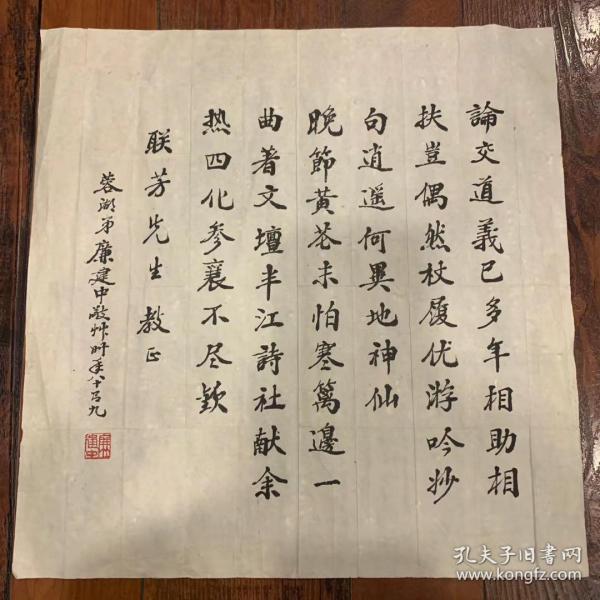 論交道義已多年相助相
扶豈偶然杖履优游吟妙
句逍遥何異地神仙
晚節黄花未怕寒篱邊一
曲著文壇半江詩社献余
热四化参襄不尽欵
联芳先生教正
蓉湖弟廉建中敬艸时年八十又九
孔夫子旧书网
www.kongfz.com